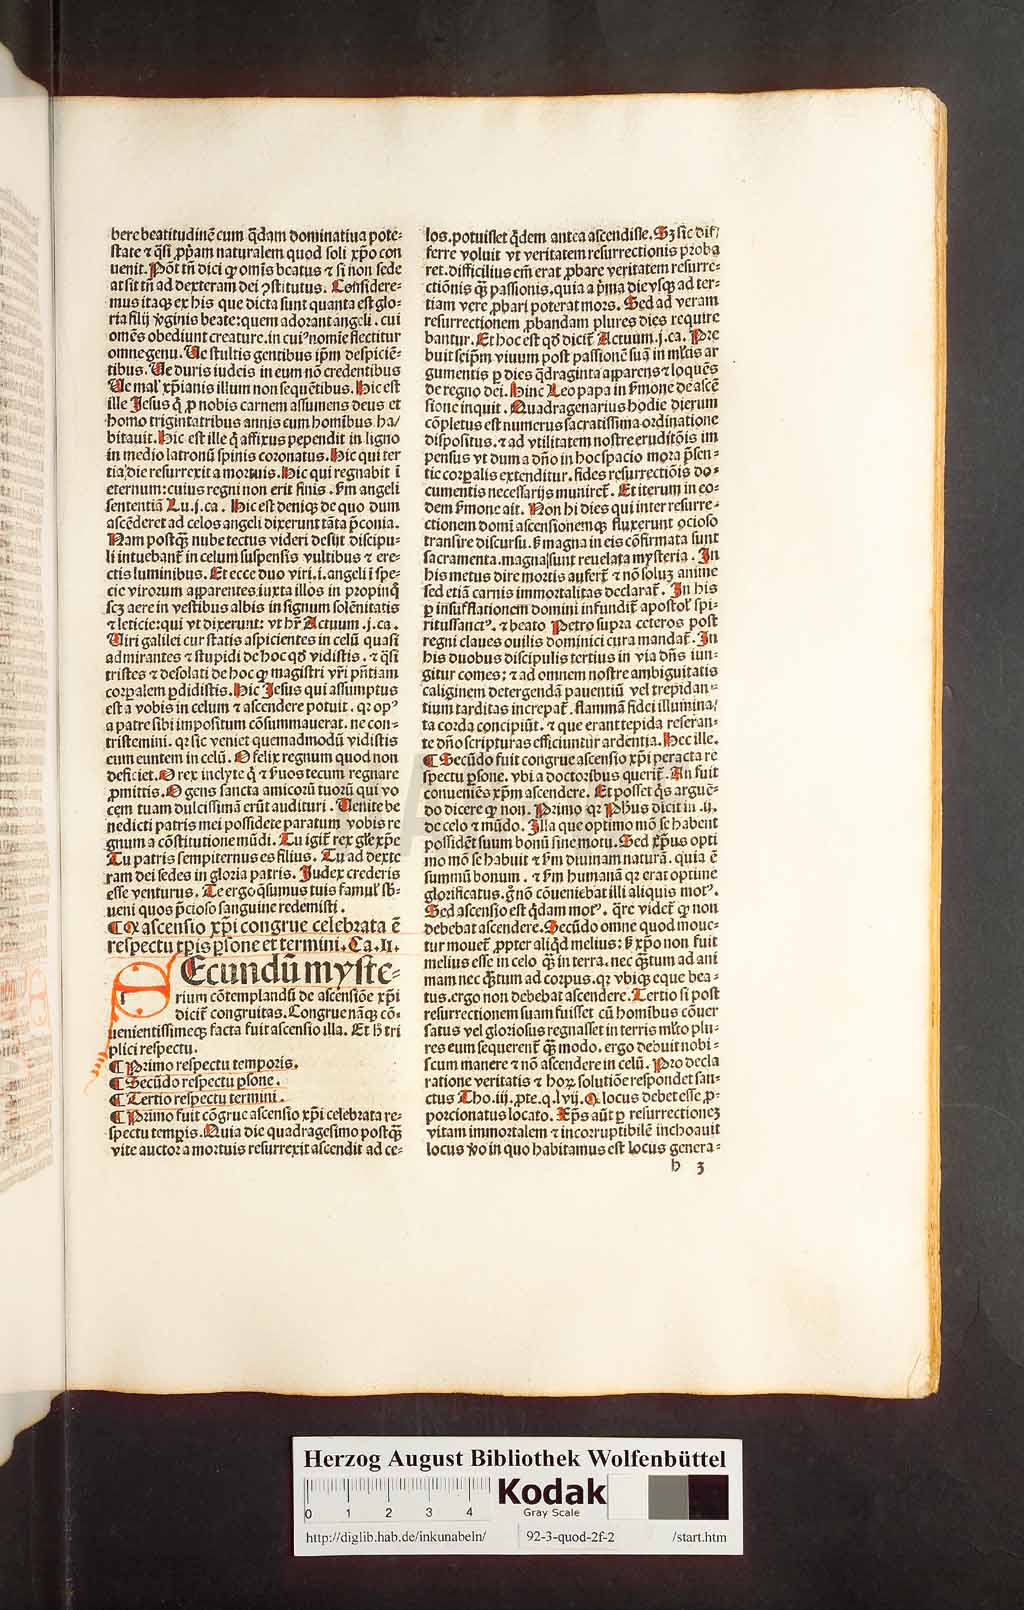 bere beatitudinē cum q̄dam dominatiua pote⸗
state ⁊ q̄si ꝓpriam naturalem quod soli xp̄o con
uenit. Pōt tn̄ dici ꝙ omīs beatus ⁊ si non sede
at sit tn̄ ad dexteram dei ꝯstitutus. Considere⸗
mus itaqꝫ ex his que dicta sunt quanta est glo⸗
ria filij v̓ginis beate: quem adorant angeli. cui
omēs obediunt creature. in cuiꝰ nomie flectitur
omne genu. Ue stultis gentibus ip̄m despiciē⸗
tibus. Ue duris iudeis in eum nō credentibus
Ue mal̓ xp̄ianis illum non sequētibus. Hic est
ille Jesus q̄ ꝓ nobis carnem assumens deus et
homo triginta tribus annis cum homībus ha/
bitauit. Hic est ille q̄ affixus pependit in ligno
in medio latronū spinis coronatus. Hic qui ter
tia die resurrexit a mortuis. Hic qui regnabit ī
eternum: cuius regni non erit finis. ẜm angeli
sententiā Lu.j.ca. Hic est deniqꝫ de quo dum
ascēderet ad celos angeli dixerunt tāta p̄conia.
Nam postqꝫ̄ nube tectus videri desijt discipu⸗
li intuebant᷑ in celum suspensis vultibus ⁊ ere⸗
ctis luminibus. Et ecce duo viri .i. angeli ī spe⸗
cie virorum apparentes iuxta illos in propinq̄
scꝫ aere in vestibus albis in signum solēnitatis
⁊ leticie: qui vt dixerunt: vt hr̄ Actuum .j.ca.
Uiri galilei cur statis aspicientes in celū quasi
admirantes ⁊ stupidi de hoc qd̓ vidistis. ⁊ q̄si
tristes ⁊ desolati de hoc ꝙ magistri vr̄i pn̄tiam
corꝑalem ꝑdidistis. Hic Jesus qui assumptus
est a vobis in celum ⁊ ascendere potuit. qꝛ opꝰ
a patre sibi impositum cōsummauerat. ne con⸗
tristemini. qꝛ sic veniet quemadmodū vidistis
eum euntem in celū. O felix regnum quod non
deficiet. O rex inclyte q̄ ⁊ ẜuos tecum regnare
ꝓmittis. O gens sancta amicorū tuorū qui vo
cem tuam dulcissimā erūt audituri. Uenite be
nedicti patris mei possidete paratum vobis re
gnum a cōstitutione mūdi. Tu igit᷑ rex gl̓e xp̄e
Tu patris sempiternus es filius. Tu ad dexte
ram dei sedes in gloria patris. Judex crederis
esse venturus. Te ergo q̄sumus tuis famul̓ sb̓⸗
ueni quos p̄cioso sanguine redemisti.
¶ Qꝙ ascensio xp̄i congrue celebrata ē
respectu tꝑis ꝑsone et termini. Ca. II.
SEcundū myste⸗
rium cōtemplandū de ascensiōe xp̄i
dicit᷑ congruitas. Congrue nāqꝫ cō⸗
uenientissimeqꝫ facta fuit ascensio illa. Et h̓ tri
plici respectu.
¶ Primo respectu temporis.
¶ Secūdo respectu ꝑsone.
¶ Tertio respectu termini.
¶ Primo fuit cōgrue ascensio xp̄i celebrata re⸗
spectu temꝑis. Quia die quadragesimo postqꝫ̄
vite auctor a mortuis resurrexit ascendit ad ce⸗
los. potuisset q̄dem antea ascendisse. Sꝫ sic dif/
ferre voluit vt veritatem resurrectionis proba
ret. difficilius em̄ erat ꝓbare veritatem resurre⸗
ctiōnis qꝫ̄ passionis. quia a p̄ma die vsqꝫ ad ter⸗
tiam vere ꝓbari poterat mors. Sed ad veram
resurrectionem ꝓbandam plures dies require
bantur. Et hoc est qd̓ dicit᷑ Actuum .j.ca. Pre
buit seip̄m viuum post passionē suā in ml̓tis ar
gumentis ꝑ dies q̄draginta apparens ⁊ loquēs
de regno dei. Hinc Leo papa in ẜmone de ascē
sione inquit. Quadragenarius hodie dierum
cōpletus est numerus sacratissima ordinatione
dispositus. ⁊ ad vtilitatem nostre eruditōis im
pensus vt dum a dn̄o in hoc spacio mora p̄sen⸗
tie corꝑalis extenditur. fides resurrectiōis do⸗
cumentis necessarijs muniret᷑. Et iterum in eo⸗
dem ẜmone ait. Non hi dies qui inter resurre⸗
ctionem domī ascensionemqꝫ fluxerunt ꝯcioso
transire discursu. ẜ magna in eis cōfirmata sunt
sacramenta. magna sunt reuelata mysteria. In
his metus dire mortis aufert᷑ ⁊ nō soluꝫ anime
sed etiā carnis immortalitas declarat᷑. In his
ꝑ insufflationem domini infundit᷑ apostol̓ spi⸗
ritussanctꝰ. ⁊ beato Petro supra ceteros post
regni claues ouilis dominici cura mandat᷑. In
his duobus discipulis tertius in via dn̄s iun⸗
gitur comes: ⁊ ad omnem nostre ambiguitatis
caliginem detergendā pauentiū vel trepidan⸗
tium tarditas increpat᷑. flammā fidei illumina/
ta corda concipiūt. ⁊ que erant tepida reseran⸗
te dn̄o scripturas efficiuntur ardentia. Hec ille.
¶ Secūdo fuit congrue ascensio xp̄i peracta re
spectu ꝑsone. vbi a doctoribus querit᷑. An fuit
conueniēs xp̄m ascendere. Et posset q̄s arguē⸗
do dicere ꝙ non. Primo qꝛ Ph̓us dicit in .ij.
de celo ⁊ mūdo. Illa que optimo mō se habent
possidēt suum bonū sine motu. Sed xp̄us opti
mo mō se habuit ⁊ ẜm diuinam naturā. quia ē
summū bonum. ⁊ ẜm humanā qꝛ erat optime
glorificatus. g̊ nō cōueniebat illi aliquis motꝰ.
Sed ascensio est q̄dam motꝰ. q̄re videt᷑ ꝙ non
debebat ascendere. Secūdo omne quod moue⸗
tur mouet᷑ ꝓpter aliqd̓ melius: ẜ xp̄o non fuit
melius esse in celo qꝫ̄ in terra. nec qꝫ̄tum ad ani
mam nec qꝫ̄tum ad corpus. qꝛ vbiqꝫ eque bea⸗
tus. ergo non debebat ascendere. Tertio si post
resurrectionem suam fuisset cū homībus cōuer
satus vel gloriosus regnasset in terris ml̓to plu⸗
res eum sequerent᷑ qꝫ̄ modo. ergo debuit nobi⸗
scum manere ⁊ nō ascendere in celū. Pro decla
ratione veritatis ⁊ hoꝝ solutiōe respondet san⸗
ctus Tho. iij. ꝑte. q. lvij. Qꝙ locus debet esse ꝓ⸗
porcionatus locato. Xp̄s aūt ꝑ resurrectioneꝫ
vitam immortalem ⁊ incorruptibilē inchoauit
locus v̓o in quo habitamus est locus genera⸗
h 3
Herzog August Bibliothek Wolfenbüttel
0 1 2 3 4
Kodak
Gray Scale
http://diglib.hab.de/inkunabeln/ 92-3-quod-2f-2 /start.htm